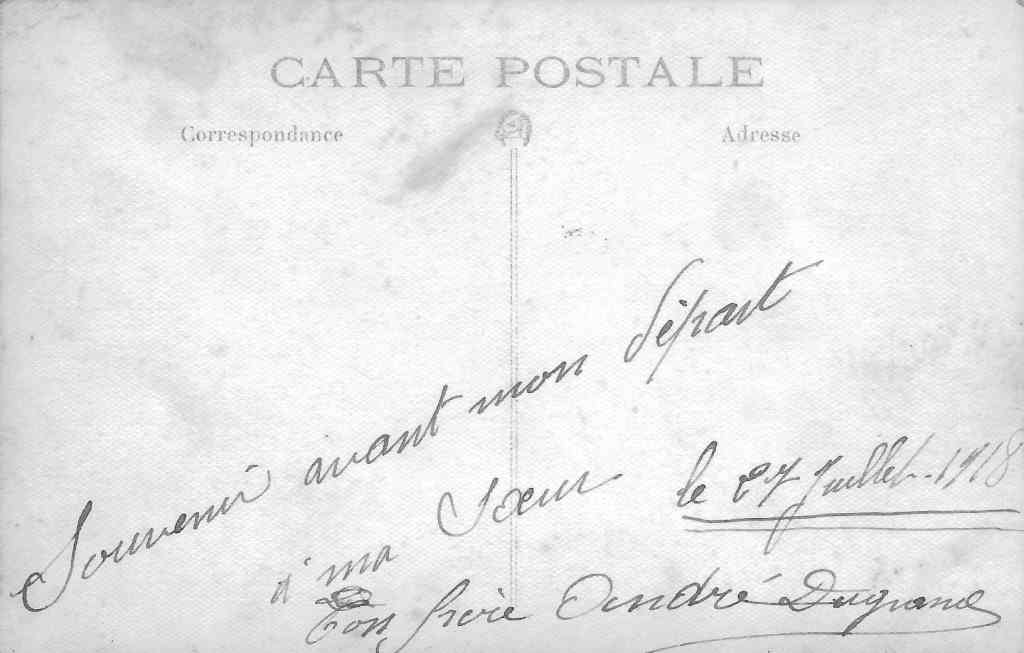 CARTE POSTALE
Correspondance Adresse
Souvenir avant mon départ
à ma Sœur le 27 Juillet 1918
Ton frère André Dugrand